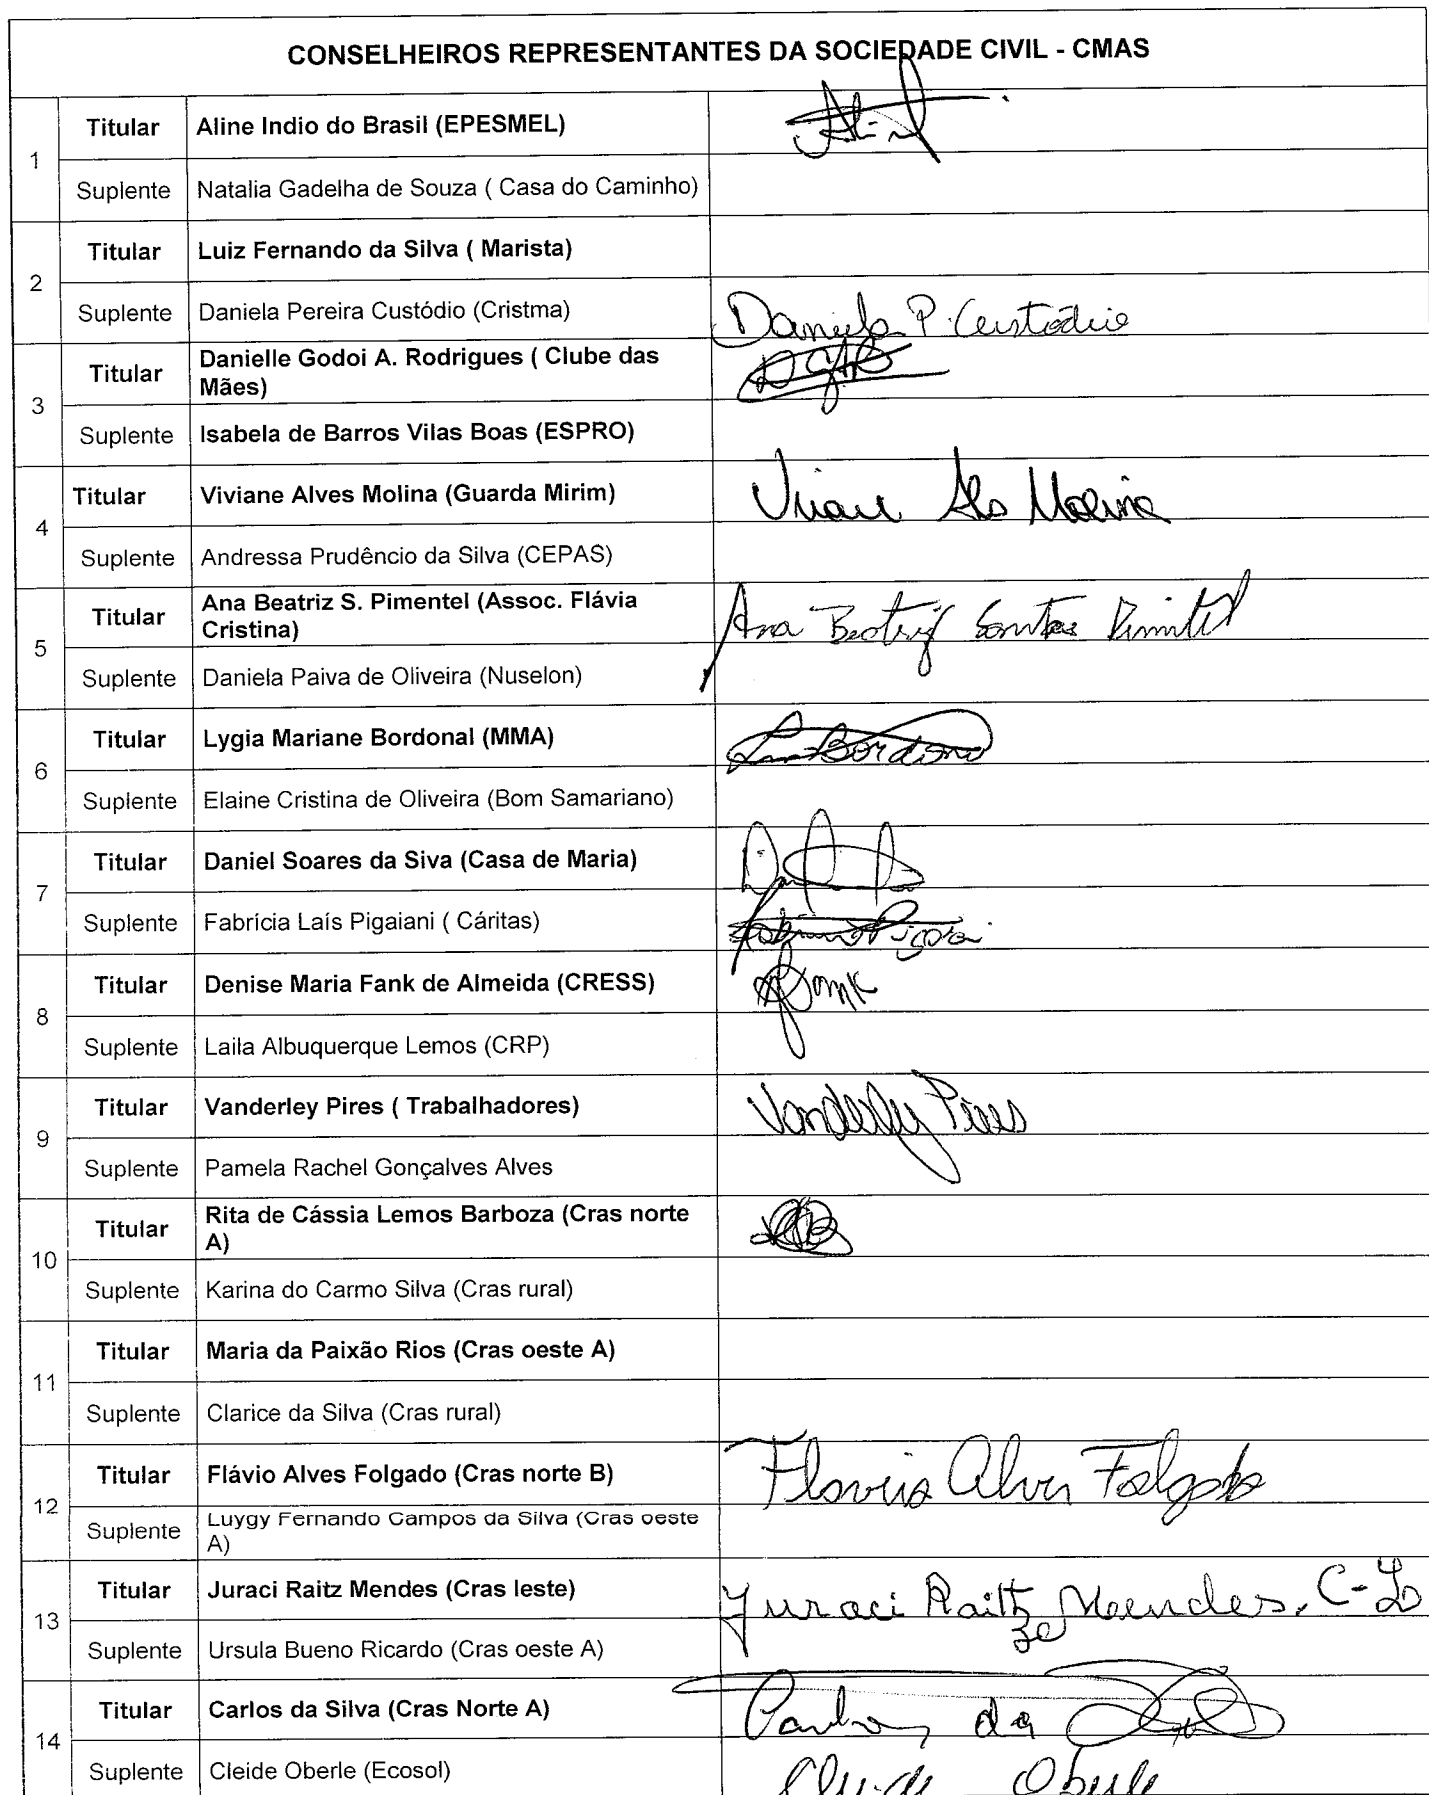 CONSELHEIROS REPRESENTANTES DA SOCIEDADE CIVIL - CMAS
1
Titular Aline Indio do Brasil (EPESMEL) Aline
Suplente Natalia Gadelha de Souza ( Casa do Caminho)
2
Titular Luiz Fernando da Silva ( Marista)
Suplente Daniela Pereira Custódio (Cristma) Daniela P. Custódio
3
Titular Danielle Godoi A. Rodrigues ( Clube das
Mães)
Suplente Isabela de Barros Vilas Boas (ESPRO)
4
Titular Viviane Alves Molina (Guarda Mirim) Molina
Suplente Andressa Prudêncio da Silva (CEPAS)
5
Titular Ana Beatriz S. Pimentel (Assoc. Flávia
Cristina) Ana Beatriz Santos Pimentel
Suplente Daniela Paiva de Oliveira (Nuselon)
6
Titular Lygia Mariane Bordonal (MMA)
Suplente Elaine Cristina de Oliveira (Bom Samariano)
7
Titular Daniel Soares da Siva (Casa de Maria)
Suplente Fabrícia Laís Pigaiani ( Cáritas)
8
Titular Denise Maria Fank de Almeida (CRESS)
Suplente Laila Albuquerque Lemos (CRP)
9
Titular Vanderley Pires ( Trabalhadores) Vanderley Pires
Suplente Pamela Rachel Gonçalves Alves
10
Titular Rita de Cássia Lemos Barboza (Cras norte
A)
Suplente Karina do Carmo Silva (Cras rural)
11
Titular Maria da Paixão Rios (Cras oeste A)
Suplente Clarice da Silva (Cras rural)
12
Titular Flávio Alves Folgado (Cras norte B) Flavio Alves Folgado
Suplente Luygy Fernando Campos da Silva (Cras oeste
A)
13
Titular Juraci Raitz Mendes (Cras leste) Juraci Raitz Mendes. C-L
Suplente Ursula Bueno Ricardo (Cras oeste A)
14
Titular Carlos da Silva (Cras Norte A) Carlos da Silva
Suplente Cleide Oberle (Ecosol) Cleide Oberle